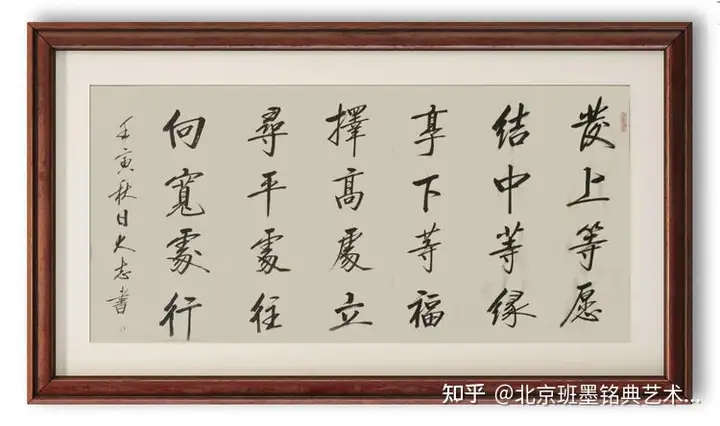 發上等愿
结中等缘
享下等福
擇高處立
尋平處往
向寬處行
壬寅秋日大志書
知乎 @北京班墨铭典艺术...